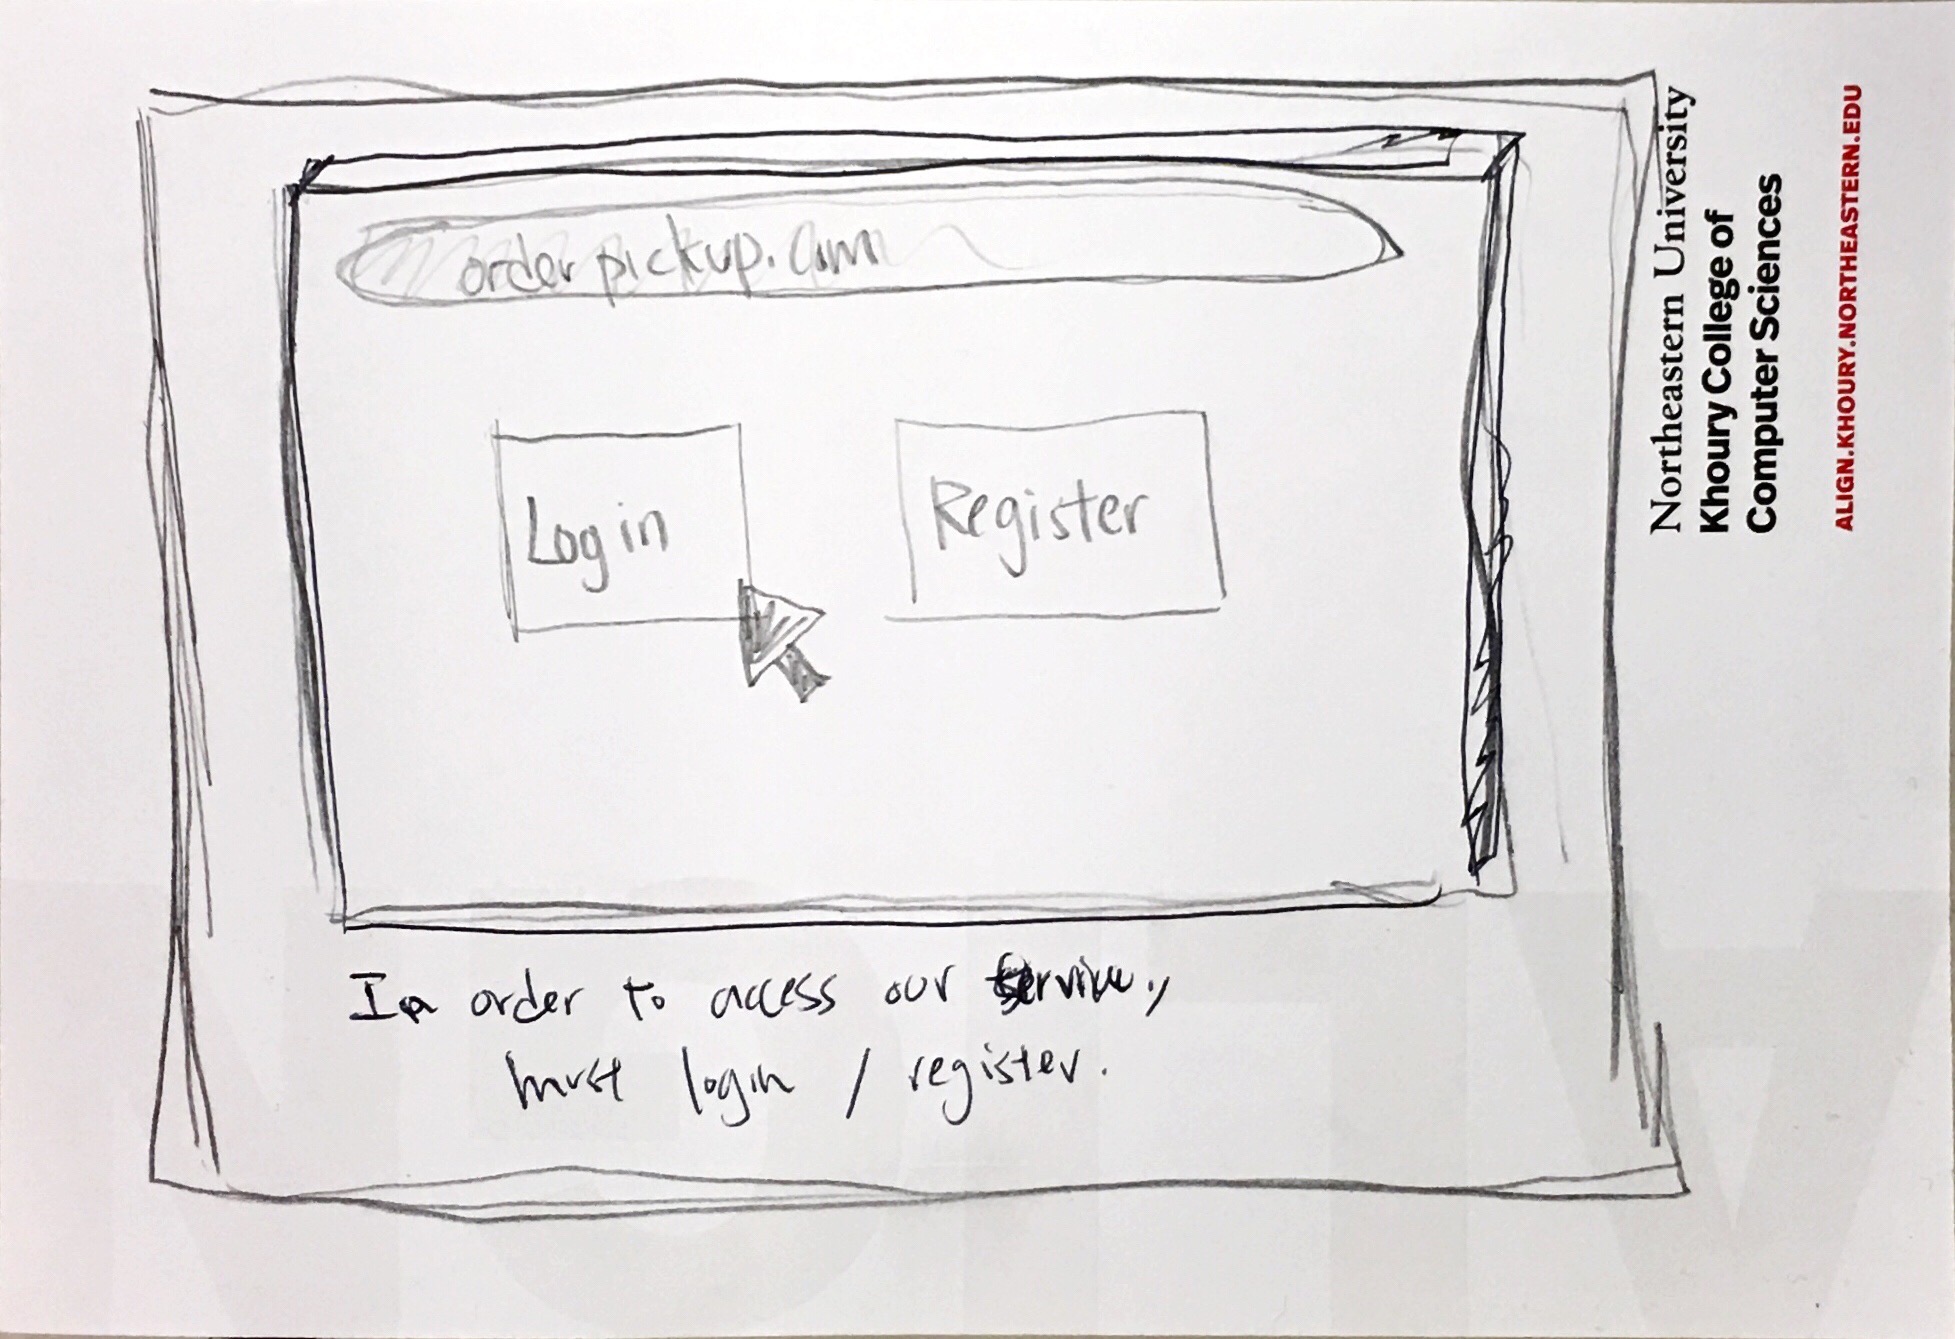 orderpickup.com
Login
Register
In order to access our service,
must login / register.
Northeastern University
Khoury College of
Computer Sciences
ALIGN.KHOURY.NORTHEASTERN.EDU
ALIGN